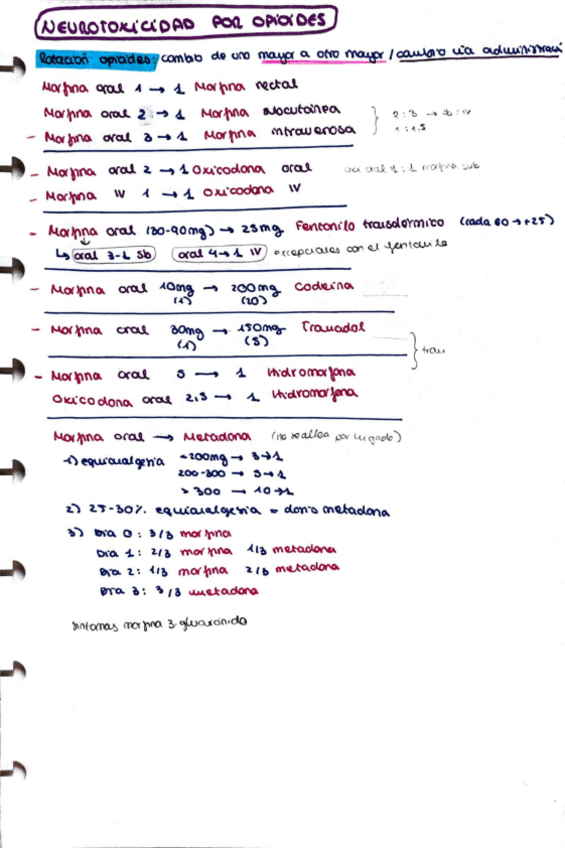 NEUROTOXICIDAD POR OPIOIDES
Rotación opioides: cambio de uno mayor a otro mayor / cambio vía administraci
Morfina oral 1 → 1 Morfina rectal
Morfina oral 2 → 1 Morfina subcutánea
- Morfina oral 3 → 1 Morfina intravenosa
1 : 1,5
- Morfina oral 2 → 1 Oxicodona oral
oral 1 : 1 morfina sub
- Morfina IV 1 → 1 Oxicodona IV
- Morfina oral (30-90mg) → 25mg Fentanilo transdérmico (cada 60 → +25)
↳ oral 3-1 sb oral 4→1 IV excepciones con el fentanilo
- Morfina oral 10mg → 200mg Codeína
(1) (20)
- Morfina oral 30mg → 150mg Tramadol
(1) (5)
} tram
- Morfina oral 5 → 1 Hidromorfona
Oxicodona oral 2,5 → 1 Hidromorfona
Morfina oral → Metadona (no se altera por hígado)
1) equianalgesia -200mg → 3→1
200-300 → 5→1
> 300 → 10→1
2) 25-30% equianalgesia = dosis metadona
3) Día 0: 3/3 morfina
Día 1: 2/3 morfina 1/3 metadona
Día 2: 1/3 morfina 2/3 metadona
Día 3: 3/3 metadona
Síntomas morfina 3-glucorónido